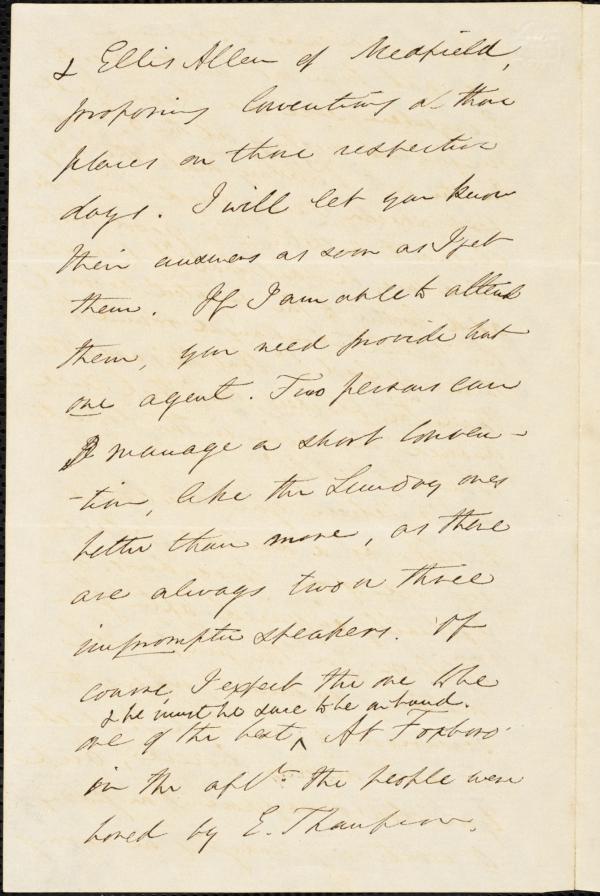 & Ellis Allen of Medfield,
proposing Conventions at those
places on those respective
days. I will let you know
their answers as soon as I get
them. If I am able to attend
them, you need provide but
one agent. Two persons can
manage a short Conven-
-tion, like the Sunday ones
better than more, as there
are always two or three
impromptu speakers. Of
course, I expect the one to be
& he must be sure to be on hand.
one of the best ^ At Foxboro'
in the aft. the people were
bored by E. Thompson.